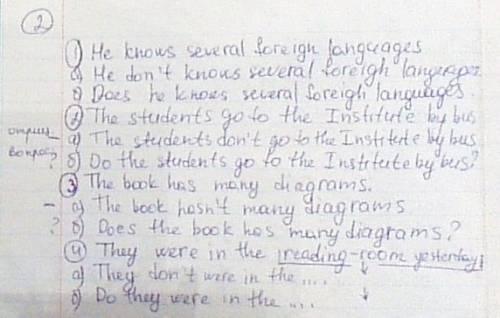 2
1) He knows several foreign languages
а) He don't knows several foreigh languages
б) Does he knows several foreigh languages
2) The students go to the Institute by bus
отриц – а) The students don't go to the Institute by bus
вопрос? б) Do the students go to the Institute by bus?
3 The book has many diagrams.
– а) The book hasn't many diagrams
? б) Does the book has many diagrams?
4) They were in the reading-room yesterday
а) They don't were in the ....
б) Do they were in the ...